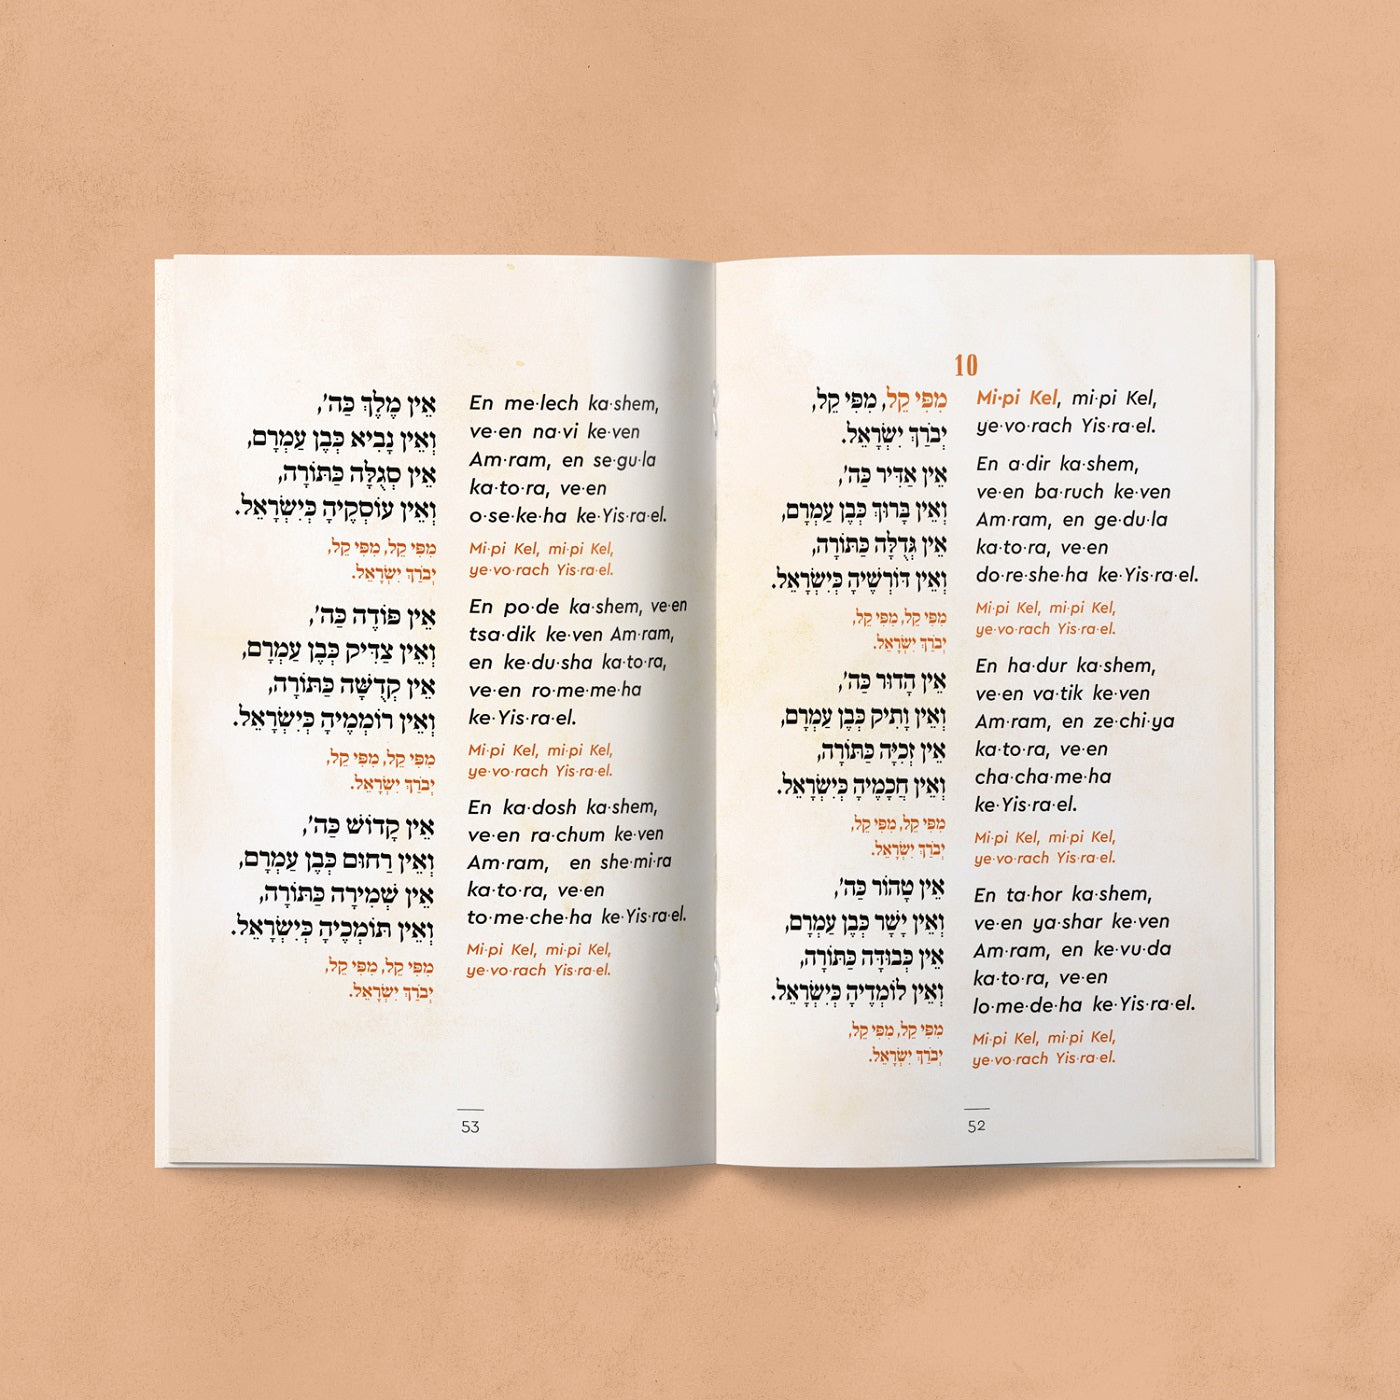 10
מִפִּי קֵל, מִפִּי קֵל,
יְבֹרַךְ יִשְׂרָאֵל.
אֵין אַדִּיר כַּה',
וְאֵין בָּרוּךְ כְּבֶן עַמְרָם,
אֵין גְּדֻלָּה כַּתּוֹרָה,
וְאֵין דּוֹרְשֶׁיהָ כְּיִשְׂרָאֵל.
מִפִּי קֵל, מִפִּי קֵל,
יְבֹרַךְ יִשְׂרָאֵל.
אֵין הָדוּר כַּה',
וְאֵין וָתִיק כְּבֶן עַמְרָם,
אֵין זְכִיָּה כַּתּוֹרָה,
וְאֵין חֲכָמֶיהָ כְּיִשְׂרָאֵל.
מִפִּי קֵל, מִפִּי קֵל,
יְבֹרַךְ יִשְׂרָאֵל.
אֵין טָהוֹר כַּה',
וְאֵין יָשָׁר כְּבֶן עַמְרָם,
אֵין כְּבוּדָּה כַּתּוֹרָה,
וְאֵין לוֹמְדֶיהָ כְּיִשְׂרָאֵל.
מִפִּי קֵל, מִפִּי קֵל,
יְבֹרַךְ יִשְׂרָאֵל.
Mi·pi Kel, mi·pi Kel,
ye·vo·rach Yis·ra·el.
En a·dir ka·shem,
ve·en ba·ruch ke·ven
Am·ram, en ge·du·la
ka·to·ra, ve·en
do·re·she·ha ke·Yis·ra·el.
Mi·pi Kel, mi·pi Kel,
ye·vo·rach Yis·ra·el.
En ha·dur ka·shem,
ve·en va·tik ke·ven
Am·ram, en ze·chi·ya
ka·to·ra, ve·en
cha·cha·me·ha
ke·Yis·ra·el.
Mi·pi Kel, mi·pi Kel,
ye·vo·rach Yis·ra·el.
En ta·hor ka·shem,
ve·en ya·shar ke·ven
Am·ram, en ke·vu·da
ka·to·ra, ve·en
lo·me·de·ha ke·Yis·ra·el.
Mi·pi Kel, mi·pi Kel,
ye·vo·rach Yis·ra·el.
52
אֵין מֶלֶךְ כַּה',
וְאֵין נָבִיא כְּבֶן עַמְרָם,
אֵין סְגֻלָּה כַּתּוֹרָה,
וְאֵין עוֹסְקֶיהָ כְּיִשְׂרָאֵל.
מִפִּי קֵל, מִפִּי קֵל,
יְבֹרַךְ יִשְׂרָאֵל.
אֵין פּוֹדֶה כַּה',
וְאֵין צַדִּיק כְּבֶן עַמְרָם,
אֵין קְדֻשָּׁה כַּתּוֹרָה,
וְאֵין רוֹמְמֶיהָ כְּיִשְׂרָאֵל.
מִפִּי קֵל, מִפִּי קֵל,
יְבֹרַךְ יִשְׂרָאֵל.
אֵין קָדוֹשׁ כַּה',
וְאֵין רַחוּם כְּבֶן עַמְרָם,
אֵין שְׁמִירָה כַּתּוֹרָה,
וְאֵין תּוֹמְכֶיהָ כְּיִשְׂרָאֵל.
מִפִּי קֵל, מִפִּי קֵל,
יְבֹרַךְ יִשְׂרָאֵל.
En me·lech ka·shem,
ve·en na·vi ke·ven
Am·ram, en se·gu·la
ka·to·ra, ve·en
o·se·ke·ha ke·Yis·ra·el.
Mi·pi Kel, mi·pi Kel,
ye·vo·rach Yis·ra·el.
En po·de ka·shem, ve·en
tsa·dik ke·ven Am·ram,
en ke·du·sha ka·to·ra,
ve·en ro·me·me·ha
ke·Yis·ra·el.
Mi·pi Kel, mi·pi Kel,
ye·vo·rach Yis·ra·el.
En ka·dosh ka·shem,
ve·en ra·chum ke·ven
Am·ram, en she·mi·ra
ka·to·ra, ve·en
to·me·che·ha ke·Yis·ra·el.
Mi·pi Kel, mi·pi Kel,
ye·vo·rach Yis·ra·el.
53